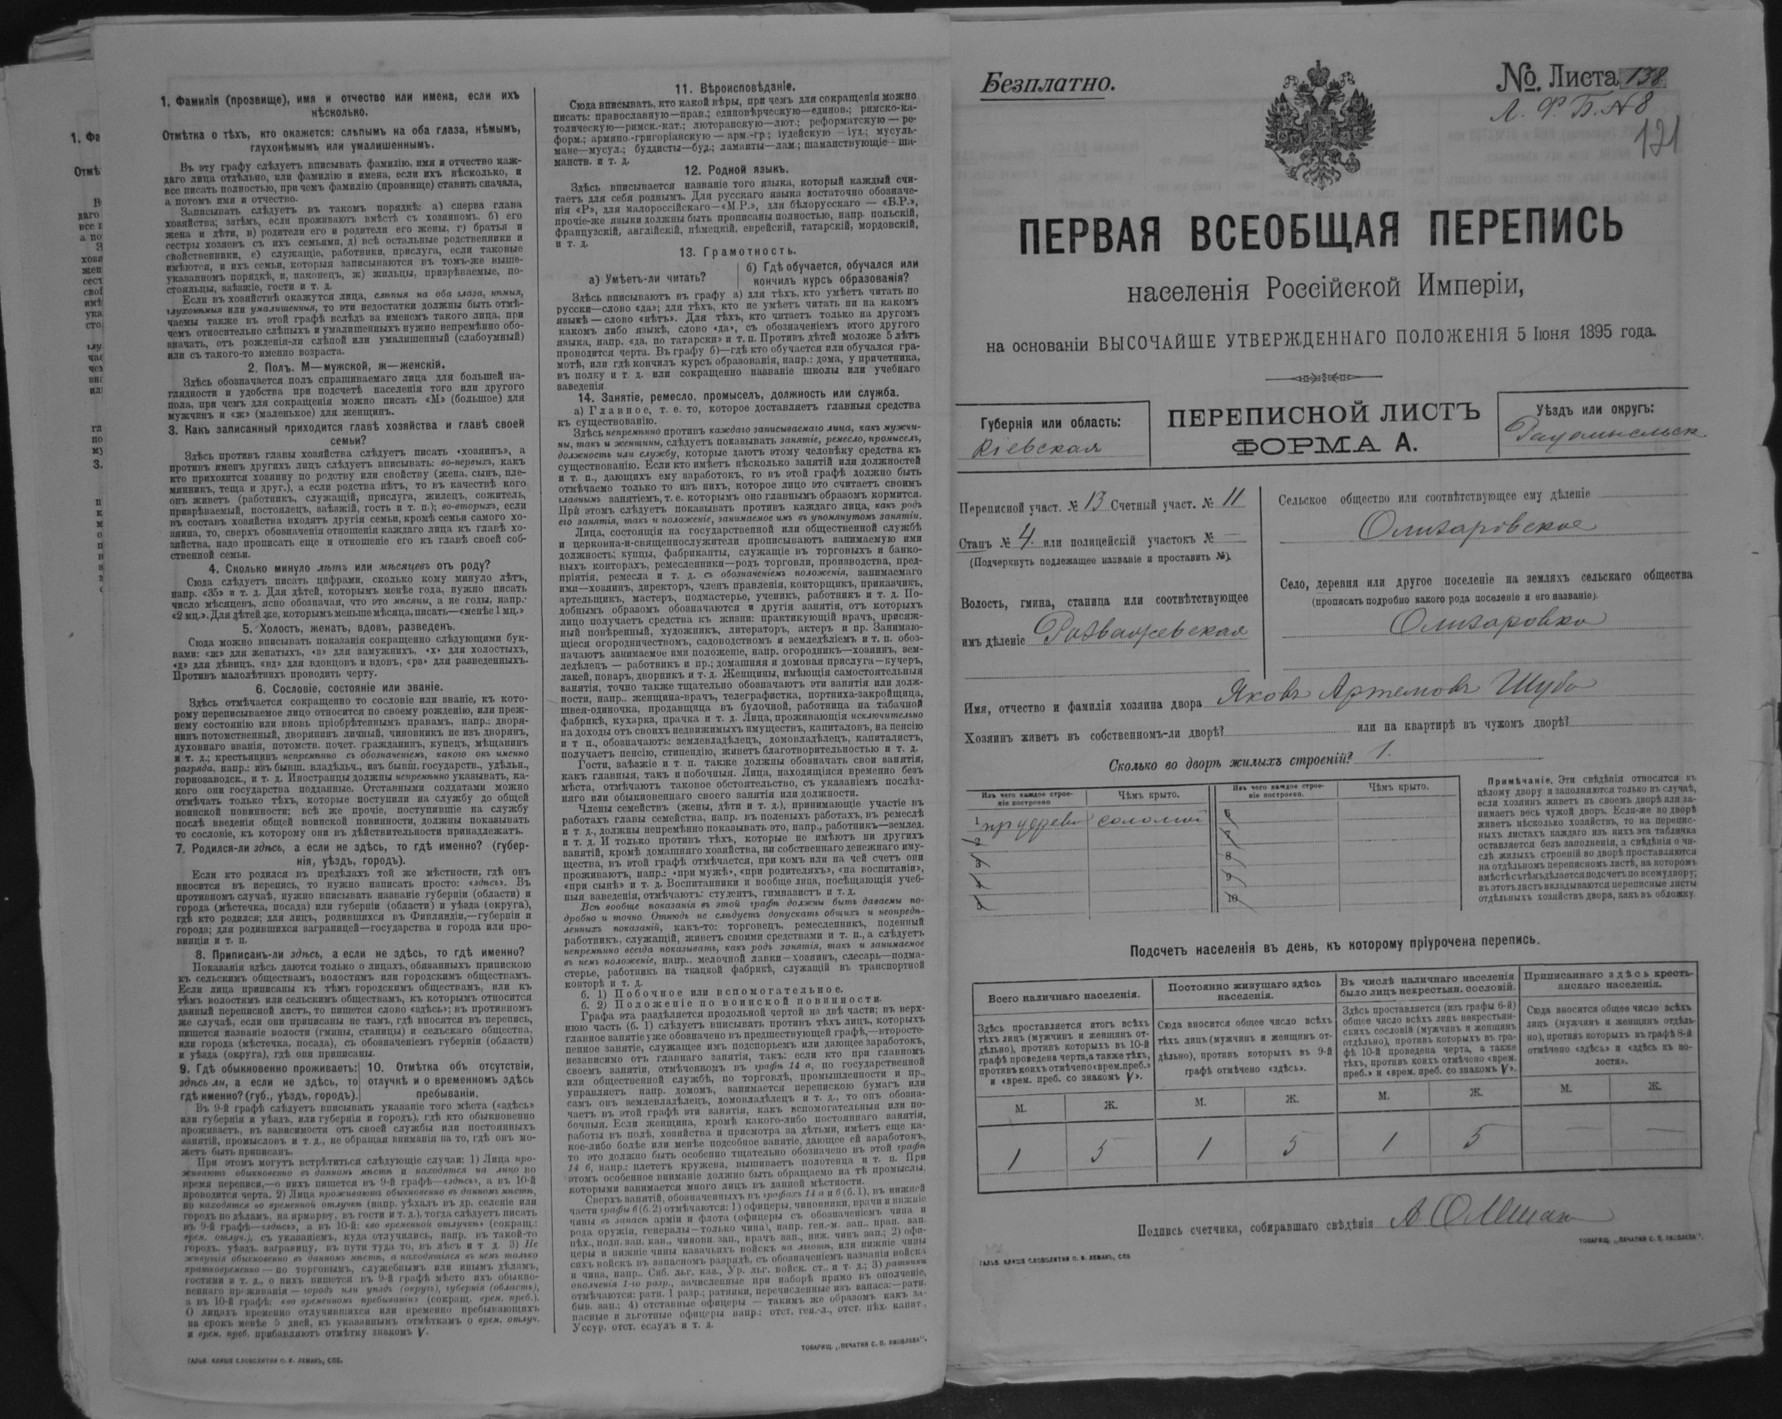 1. Фамилія (прозвище), имя и отчество или имена, если ихъ
нѣсколько.
Отмѣтка о тѣхъ, кто окажется: слѣпымъ на оба глаза, нѣмымъ,
глухонѣмымъ или умалишеннымъ.
Въ эту графу слѣдуетъ вписывать фамилію, имя и отчество каж-
даго лица отдѣльно, или фамилію и имена, если ихъ нѣсколько, и
все писать полностью, при чемъ фамилію (прозвище) ставить сначала,
а потомъ имя и отчество.
Записывать слѣдуетъ въ такомъ порядкѣ: а) сперва глава
хозяйства; затѣмъ, если проживаютъ вмѣстѣ съ хозяиномъ. б) его
жена и дѣти, в) родители его и родители его жены, г) братья и
сестры хозяевъ съ ихъ семьями, д) всѣ остальные родственники и
свойственники, е) служащіе, работники, прислуга, если таковые
имѣются, и ихъ семьи, которыя записываются въ томъ-же выше-
указанномъ порядкѣ, и, наконецъ, ж) жильцы, призрѣваемые, по-
стояльцы, заѣзжіе, гости и т. д.
Если въ хозяйствѣ окажутся лица, слѣпыя на оба глаза, нѣмыя,
глухонѣмыя или умалишенныя, то эти недостатки должны быть отмѣ-
чаемы также въ этой графѣ вслѣдъ за именемъ такого лица, при
чемъ относительно слѣпыхъ и умалишенныхъ нужно непремѣнно обо-
значать, отъ рожденія-ли слѣпой или умалишенный (слабоумный)
или съ такого-то именно возраста.
2. Полъ. М—мужской, ж—женскій.
Здѣсь обозначается полъ спрашиваемаго лица для большей на-
глядности и удобства при подсчетѣ населенія того или другого
пола, при чемъ для сокращенія можно писать «М» (большое) для
мужчинъ и «ж» (маленькое) для женщинъ.
3. Какъ записанный приходится главѣ хозяйства и главѣ своей
семьи?
Здѣсь противъ главы хозяйства слѣдуетъ писать «хозяинъ», а
противъ именъ другихъ лицъ слѣдуетъ вписывать: во-первыхъ, какъ
кто приходится хозяину по родству или свойству (жена, сынъ, пле-
мянникъ, теща и друг.), а если родства нѣтъ, то въ качествѣ кого
онъ живетъ (работникъ, служащій, прислуга, жилецъ, сожитель,
призрѣваемый, постоялецъ, заѣзжій, гость и т. п.); во-вторыхъ, если
въ составъ хозяйства входятъ другія семьи, кромѣ семьи самого хо-
зяина, то, сверхъ обозначенія отношенія каждаго лица къ главѣ хо-
зяйства, надо прописать еще и отношеніе его къ главѣ своей соб-
ственной семьи.
4. Сколько минуло лѣтъ или мѣсяцевъ отъ роду?
Сюда слѣдуетъ писать цифрами, сколько кому минуло лѣтъ,
напр. «35» и т. д. Для дѣтей, которымъ менѣе года, нужно писать
число мѣсяцевъ, ясно обозначая, что это мѣсяцы, а не годы, напр.
«2 мц.». Для дѣтей же, которымъ меньше мѣсяца, писать—«менѣе 1 мц.»
5. Холостъ, женатъ, вдовъ, разведенъ.
Сюда можно вписывать показанія сокращенно слѣдующими бук-
вами: «ж» для женатыхъ, «з» для замужнихъ, «х» для холостыхъ,
«д» для дѣвицъ, «вд» для вдовцовъ и вдовъ, «рз» для разведенныхъ.
Противъ малолѣтнихъ проводить черту.
6. Сословіе, состояніе или званіе.
Здѣсь отмѣчается сокращенно то сословіе или званіе, къ кото-
рому переписываемое лицо относится по своему рожденію, или преж-
нему состоянію или вновь пріобрѣтеннымъ правамъ, напр.: дворя-
нинъ потомственный, дворянинъ личный, чиновникъ не изъ дворянъ,
духовнаго званія, потомств. почет. гражданинъ, купецъ, мѣщанинъ
и т. д.; крестьянинъ непремѣнно съ обозначеніемъ, какого онъ именно
разряда, напр.: изъ бывш. владѣльч., изъ бывш. государств., удѣльн.,
горнозаводск., и т. д. Иностранцы должны непремѣнно указывать, ка-
кого они государства подданные. Отставными солдатами можно
отмѣчать только тѣхъ, которые поступили на службу до общей
воинской повинности; всѣ же прочіе, поступившіе на службу
послѣ введенія общей воинской повинности, должны показывать
то сословіе, къ которому они въ дѣйствительности принадлежатъ.
7. Родился-ли здѣсь, а если не здѣсь, то гдѣ именно? (губер-
нія, уѣздъ, городъ).
Если кто родился въ предѣлахъ той же мѣстности, гдѣ онъ
вносится въ перепись, то нужно написать просто: «здѣсь». Въ
противномъ случаѣ, нужно вписывать названіе губерніи (области) и
города (мѣстечка, посада) или губерніи (области) и уѣзда (округа),
гдѣ кто родился; для лицъ, родившихся въ Финляндіи,—губерніи и
города; для родившихся заграницей—государства и города или про-
винціи и т. п.
8. Приписанъ-ли здѣсь, а если не здѣсь, то гдѣ именно?
Показанія здѣсь даются только о лицахъ, обязанныхъ припискою
къ сельскимъ обществамъ, волостямъ или городскимъ обществамъ.
Если лица приписаны къ тѣмъ городскимъ обществамъ, или къ
тѣмъ волостямъ или сельскимъ обществамъ, къ которымъ относится
данный переписной листъ, то пишется слово «здѣсь»; въ противномъ
же случаѣ, если они приписаны не тамъ, гдѣ вносятся въ перепись,
пишется названіе волости (гмины, станицы) и сельскаго общества,
или города (мѣстечка, посада), съ обозначеніемъ губерніи (области)
и уѣзда (округа), гдѣ они приписаны.
9. Гдѣ обыкновенно проживаетъ:
здѣсь ли, а если не здѣсь, то
гдѣ именно? (губ., уѣздъ, городъ).
10. Отмѣтка объ отсутствіи,
отлучкѣ и о временномъ здѣсь
пребываніи.
Въ 9-й графѣ слѣдуетъ вписывать указаніе того мѣста («здѣсь»
или губернія и уѣздъ, или губернія и городъ), гдѣ кто обыкновенно
проживаетъ, въ зависимости отъ своей службы или постоянныхъ
занятій, промысловъ и т. д., не обращая вниманія на то, гдѣ онъ мо-
жетъ быть приписанъ.
При этомъ могутъ встрѣтиться слѣдующіе случаи: 1) Лица про-
живаютъ обыкновенно въ данномъ мѣстѣ и находятся на лицо во
время переписи,—о нихъ пишется въ 9-й графѣ—«здѣсь», а въ 10-й
проводится черта. 2) Лица проживаютъ обыкновенно въ данномъ мѣстѣ,
но находятся во временной отлучкѣ (напр. уѣхалъ въ др. селеніе или
городъ по дѣламъ, на ярмарку, въ гости и т. д.), тогда слѣдуетъ писать
въ 9-й графѣ—«здѣсь», а въ 10-й: «во временной отлучкѣ» (сокращ.:
врем. отлуч.), съ указаніемъ, куда отлучились, напр. въ такой-то
городъ, уѣздъ, заграницу, въ пути туда то, въ лѣсъ и т. д. 3) Не
живутъ обыкновенно въ данномъ мѣстѣ, а находятся въ немъ только
кратковременно — по торговымъ, служебнымъ или инымъ дѣламъ,
гостями и т. д., о нихъ пишется въ 9-й графѣ мѣсто ихъ обыкно-
веннаго проживанія — городъ или уѣздъ (округъ), губернія (область),
а въ 10-й графѣ: «во временномъ пребываніи» (сокращ. врем. преб.).
О лицахъ временно отлучившихся или временно пребывающихъ
на срокъ менѣе 5 дней, къ указаннымъ отмѣткамъ о врем. отлуч.
и врем. преб. прибавляютъ отмѣтку знакомъ V.
ГАЛЬВ. КЛИШЕ СЛОВОЛИТНИ О. И. ЛЕМАНЪ, СПБ.
11. Вѣроисповѣданіе.
Сюда вписывать, кто какой вѣры, при чемъ для сокращенія можно
писать: православную—прав.; единовѣрческую—единов.; римско-ка-
толическую—римск.-кат.; лютеранскую—лют.; реформатскую — ре-
форм.; армяно-григоріанскую — арм.-гр.; іудейскую — іуд.; мусуль-
мане—мусул.; буддисты—буд.; ламаиты—лам.; шаманствующіе—ша-
манств. и т. д.
12. Родной языкъ.
Здѣсь вписывается названіе того языка, который каждый счи-
таетъ для себя роднымъ. Для русскаго языка достаточно обозначе-
нія «Р», для малороссійскаго—«М.Р.», для бѣлорусскаго — «Б.Р.»,
прочіе-же языки должны быть прописаны полностью, напр. польскій,
французскій, англійскій, нѣмецкій, еврейскій, татарскій, мордовскій,
и т. д.
13. Грамотность.
а) Умѣетъ-ли читать?
б) Гдѣ обучается, обучался или
кончилъ курсъ образованія?
Здѣсь вписываютъ въ графу а) для тѣхъ, кто умѣетъ читать по
русски—слово «да»; для тѣхъ, кто не умѣетъ читать ни на какомъ
языкѣ — слово «нѣтъ». Для тѣхъ, кто читаетъ только на другомъ
какомъ либо языкѣ, слово «да», съ обозначеніемъ этого другого
языка, напр. «да, по татарски» и т. п. Противъ дѣтей моложе 5 лѣтъ
проводится черта. Въ графу б)—гдѣ кто обучается или обучался гра-
мотѣ, или гдѣ кончилъ курсъ образованія, напр.: дома, у причетника,
въ полку и т. д. или сокращенно названіе школы или учебнаго
заведенія
14. Занятіе, ремесло, промыселъ, должность или служба.
а) Главное, т. е. то, которое доставляетъ главныя средства
къ существованію.
Здѣсь непремѣнно противъ каждаго записываемаго лица, какъ мужчи-
ны, такъ и женщины, слѣдуетъ показывать занятіе, ремесло, промыселъ,
должность или службу, которые даютъ этому человѣку средства къ
существованію. Если кто имѣетъ нѣсколько занятій или должностей
и т. п., дающихъ ему заработокъ, то въ этой графѣ должно быть
отмѣчаемо только то изъ нихъ, которое лицо это считаетъ своимъ
главнымъ занятіемъ, т. е. которымъ оно главнымъ образомъ кормится.
При этомъ слѣдуетъ показывать противъ каждаго лица, какъ родъ
его занятія, такъ и положеніе, занимаемое имъ въ упомянутомъ занятіи.
Лица, состоящія на государственной или общественной службѣ
и церковно-и-священнослужители прописываютъ занимаемую ими
должность; купцы, фабриканты, служащіе въ торговыхъ и банко-
выхъ конторахъ, ремесленники—родъ торговли, производства, пред-
пріятія, ремесла и т. д. съ обозначеніемъ положенія, занимаемаго
ими—хозяинъ, директоръ, членъ правленія, конторщикъ, приказчикъ,
артельщикъ, мастеръ, подмастерье, ученикъ, работникъ и т. д. По-
добнымъ образомъ обозначаются и другія занятія, отъ которыхъ
лицо получаетъ средства къ жизни: практикующій врачъ, присяж-
ный повѣренный, художникъ, литераторъ, актеръ и пр. Занимаю-
щіеся огородничествомъ, садоводствомъ и земледѣліемъ и т. п. обоз-
начаютъ занимаемое ими положеніе, напр. огородникъ—хозяинъ, зем-
ледѣлецъ — работникъ и пр.; домашняя и домовая прислуга—кучеръ,
лакей, поваръ, дворникъ и т. д. Женщины, имѣющія самостоятельныя
занятія, точно также тщательно обозначаютъ эти занятія или долж-
ности, напр. женщина-врачъ, телеграфистка, портниха-закройщица,
швея-одиночка, продавщица въ булочной, работница на табачной
фабрикѣ, кухарка, прачка и т. д. Лица, проживающія исключительно
на доходы отъ своихъ недвижимыхъ имуществъ, капиталовъ, на пенсію
и т п., обозначаютъ: землевладѣлецъ, домовладѣлецъ, капиталистъ,
получаетъ пенсію, стипендію, живетъ благотворительностью и т. д.
Гости, заѣзжіе и т. п. также должны обозначать свои занятія,
какъ главныя, такъ и побочныя. Лица, находящіяся временно безъ
мѣста, отмѣчаютъ таковое обстоятельство, съ указаніемъ послѣд-
няго или обыкновеннаго своего занятія или должности.
Члены семействъ (жены, дѣти и т. д.), принимающіе участіе въ
работахъ главы семейства, напр. въ полевыхъ работахъ, въ ремеслѣ
и т. д., должны непремѣнно показывать это, напр., работникъ—землед.
и т. д. И только противъ тѣхъ, которые не имѣютъ ни другихъ
занятій, кромѣ домашняго хозяйства, ни собственнаго денежнаго иму-
щества, въ этой графѣ отмѣчается, при комъ или на чей счетъ они
проживаютъ, напр.: «при мужѣ», «при родителяхъ», «на воспитаніи»,
«при сынѣ» и т. д. Воспитанники и вообще лица, посѣщающія учеб-
ныя заведенія, отмѣчаютъ: студентъ, гимназистъ и т. д.
Всѣ вообще показанія въ этой графѣ должны быть даваемы по-
дробно и точно. Отнюдь не слѣдуетъ допускать общихъ и неопредѣ-
ленныхъ показаній, какъ-то: торговецъ, ремесленникъ, поденный
работникъ, служащій, живетъ своими средствами и т. п., а слѣдуетъ
непремѣнно всегда показывать, какъ родъ занятія, такъ и занимаемое
въ немъ положеніе, напр., мелочной лавки—хозяинъ, слесарь—подма-
стерье, работникъ на ткацкой фабрикѣ, служащій въ транспортной
конторѣ и т. д.
б. 1) Побочное или вспомогательное.
б. 2) Положеніе по воинской повинности.
Графа эта раздѣляется продольной чертой на двѣ части; въ верх-
нюю часть (б. 1) слѣдуетъ вписывать противъ тѣхъ лицъ, которыхъ
главное занятіе уже обозначено въ предшествующей графѣ,—второсте-
пенное занятіе, служащее имъ подспорьемъ или дающее заработокъ,
независимо отъ главнаго занятія, такъ: если кто при главномъ
своемъ занятіи, отмѣченномъ въ графѣ 14 а, по государственной
или общественной службѣ, по торговлѣ, промышленности и пр.,
управляетъ напр. домомъ, занимается перепискою бумагъ или
самъ онъ землевладѣлецъ, домовладѣлецъ и т. д., то онъ обозна-
чаетъ въ этой графѣ эти занятія, какъ вспомогательныя или по-
бочныя. Если женщина, кромѣ какого-либо постояннаго занятія,
работы въ полѣ, хозяйства и присмотра за дѣтьми, имѣетъ еще ка-
кое-либо болѣе или менѣе подсобное занятіе, дающее ей заработокъ,
то это должно быть особенно тщательно обозначено въ этой графѣ
14 б, напр.: плететъ кружева, вышиваетъ полотенца и т. п. При
этомъ особенное вниманіе должно быть обращаемо на тѣ промыслы,
которыми занимается много лицъ въ данной мѣстности.
Сверхъ занятій, обозначенныхъ въ графахъ 14 а и б (б. 1), въ нижней
части графы б (б. 2) отмѣчаются: 1) офицеры, чиновники, врачи и нижніе
чины въ запасѣ арміи и флота (офицеры съ обозначеніемъ чина и
рода оружія, генералы—только чина), напр. ген.-м. зап., прап. зап.
пѣх., подп. зап. кав., чиновн. зап., врачъ зап., ниж. чинъ зап.; 2) офи-
церы и нижніе чины казачьихъ войскъ на льготѣ, или нижніе чины
сихъ войскъ въ запасномъ разрядѣ, съ обозначеніемъ названія войска
и чина, напр., Сиб. льг. каз., Ур. льг. войск. ст., и т. д.; 3) ратники
ополченія 1-го разр., зачисленные при наборѣ прямо въ ополченіе,
отмѣчаются: ратн. 1 разр.; ратники, перечисленные изъ запаса:—ратн.
быв. зап.; 4) отставные офицеры — такимъ же образомъ какъ за-
пасные и льготные офицеры напр.: отст. ген.-л., отст. пѣх. капит.,
Уссур. отст. есаулъ и т. д.
ТОВАРИЩ. „ПЕЧАТНЯ С. П. ЯКОВЛЕВА".
Безплатно.
№ Листа 138
Л. Ф. Б. № 8
121
ПЕРВАЯ ВСЕОБЩАЯ ПЕРЕПИСЬ
населенія Россійской Имперіи,
на основаніи ВЫСОЧАЙШЕ УТВЕРЖДЕННАГО ПОЛОЖЕНІЯ 5 Іюня 1895 года.
Губернія или область:
Кіевская
ПЕРЕПИСНОЙ ЛИСТЪ
ФОРМА А.
Уѣздъ или округъ:
Радомысльск
Переписной участ. № 13 Счетный участ. № 11
Станъ № 4. или полицейскій участокъ № —
(Подчеркнуть подлежащее названіе и проставить №).
Волость, гмина, станица или соотвѣтствующее
имъ дѣленіе Розважевская
Сельское общество или соотвѣтствующее ему дѣленіе
Олизаровское
Село, деревня или другое поселеніе на земляхъ сельскаго общества
(прописать подробно какого рода поселеніе и его названіе)
Олизаровка
Имя, отчество и фамилія хозяина двора Яковъ Артемовъ Шуба
Хозяинъ живетъ въ собственномъ-ли дворѣ? или на квартирѣ въ чужомъ дворѣ?
Сколько во дворѣ жилыхъ строеній? 1.
Изъ чего каждое строе-
ніе построено.
Чѣмъ крыто.
Изъ чего каждое строе-
ніе построено.
Чѣмъ крыто.
1 соломой
2
3
4
5
6
7
8
9
10
Примѣчаніе. Эти свѣдѣнія относятся къ
цѣлому двору и заполняются только въ случаѣ,
если хозяинъ живетъ въ своемъ дворѣ или за-
нимаетъ весь чужой дворъ. Если-же во дворѣ
живетъ нѣсколько хозяйствъ, то на перепис-
ныхъ листахъ каждаго изъ нихъ эта табличка
оставляется безъ заполненія, а свѣдѣнія о чи-
слѣ жилыхъ строеній во дворѣ проставляются
на отдѣльномъ переписномъ листѣ, на которомъ
вмѣстѣ съ тѣмъ дѣлается подсчетъ по всему двору;
въ этотъ листъ вкладываются переписные листы
отдѣльныхъ хозяйствъ двора, какъ въ обложку.
Подсчетъ населенія въ день, къ которому пріурочена перепись.
Всего наличнаго населенія.
Постоянно живущаго здѣсь
населенія.
Въ числѣ наличнаго населенія
было лицъ некрестьян. сословій.
Приписаннаго здѣсь кресть-
янскаго населенія.
Здѣсь проставляется итогъ всѣхъ
тѣхъ лицъ (мужчинъ и женщинъ от-
дѣльно), противъ которыхъ въ 10-й
графѣ проведена черта, а также тѣхъ,
противъ коихъ отмѣчено «врем. преб.»
и «врем. преб. со знакомъ V».
Сюда вносится общее число всѣхъ
тѣхъ лицъ (мужчинъ и женщинъ от-
дѣльно), противъ которыхъ въ 9-й
графѣ отмѣчено «здѣсь».
Здѣсь проставляется (изъ графы 6-й)
общее число всѣхъ лицъ некрестьян-
скихъ сословій (мужчинъ и женщинъ
отдѣльно), противъ которыхъ въ гра-
фѣ 10-й проведена черта, а также
тѣхъ, противъ коихъ отмѣчено «врем.
преб.» и «врем. преб. со знакомъ V».
Сюда вносится общее число всѣхъ
лицъ (мужчинъ и женщинъ отдѣль-
но), противъ которыхъ въ графѣ 8-й
отмѣчено «здѣсь» и «здѣсь къ во-
лости».
М. Ж. М. Ж. М. Ж. М. Ж.
1 5 1 5 1 5 — —
Подпись счетчика, собиравшаго свѣдѣнія
ГАЛЬВ. КЛИШЕ СЛОВОЛИТНИ О. И. ЛЕМАНЪ, СПБ.
ТОВАРИЩ. „ПЕЧАТНЯ С. П. ЯКОВЛЕВА".